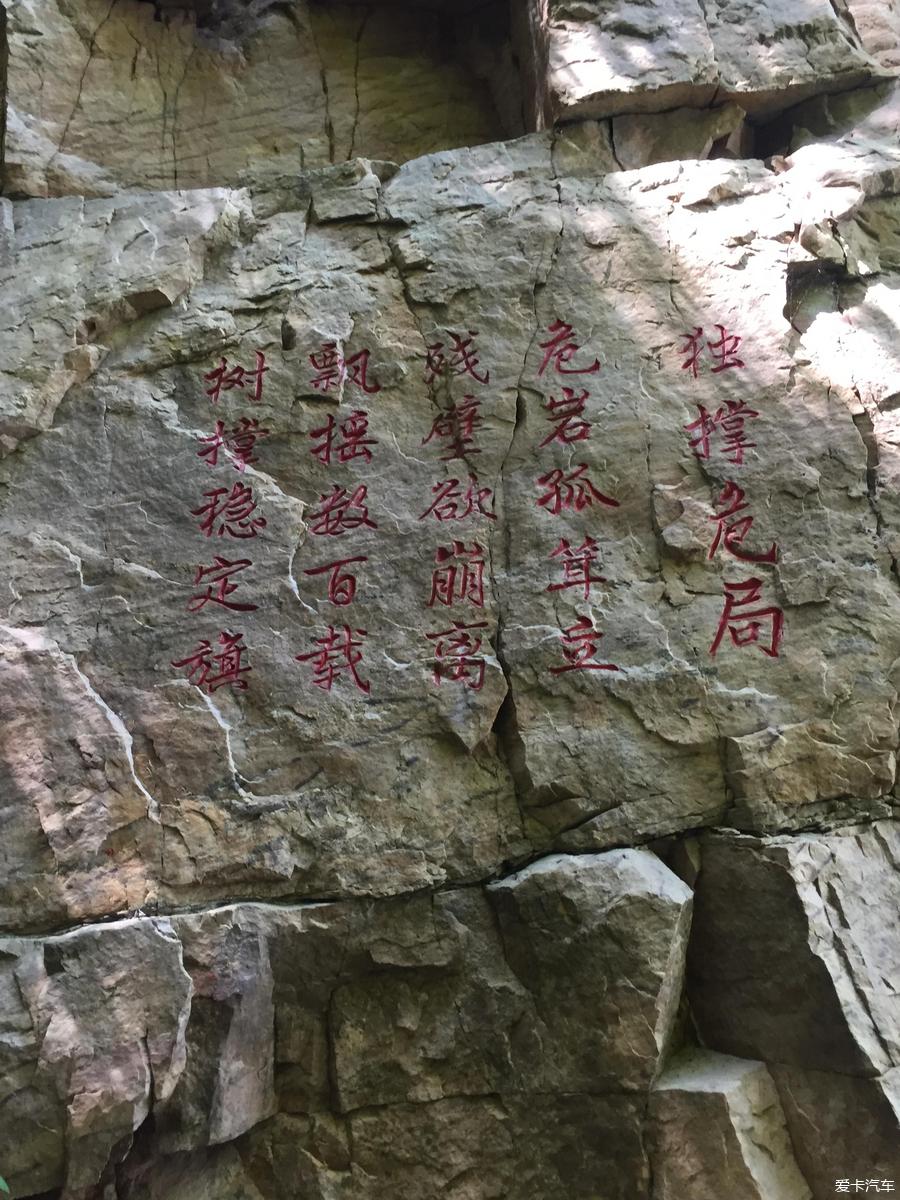 独撑危局
危岩孤耸立
残壁欲崩离
飘摇数百载
树撑稳定旗
爱卡汽车